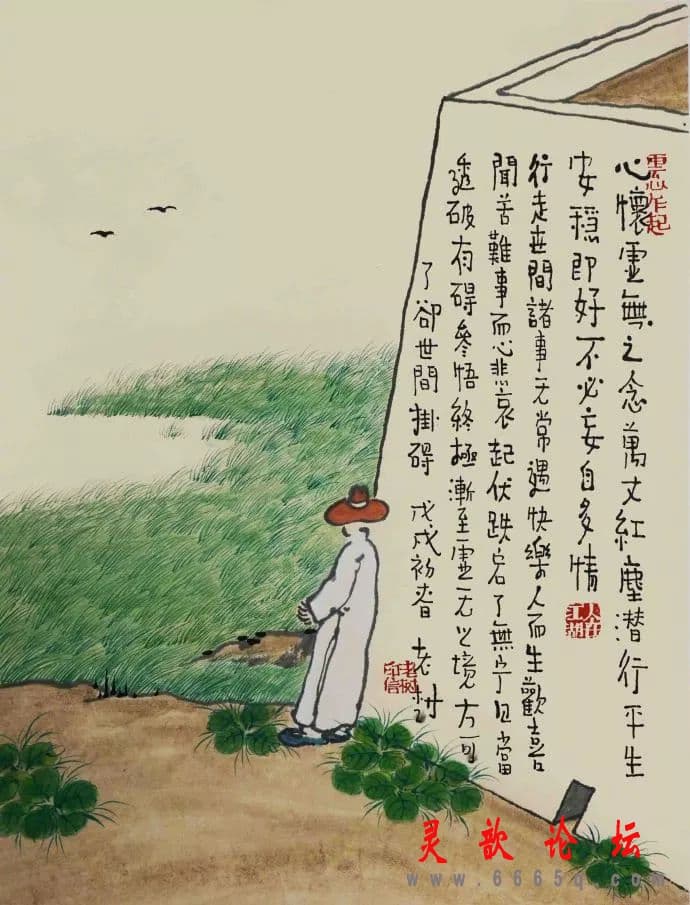 心懷虛無之念萬丈紅塵潜行平生
安穩即好不必妄自多情
人在江湖
行走世間諸事无常遇快樂人而生歡喜
聞苦難事而心悲哀起伏跌宕了無宁日當
透破有碍參悟終極漸至虛无之境方可
了卻世間掛碍 戊戌初春 老树
灵歆论坛
www.6665q.com